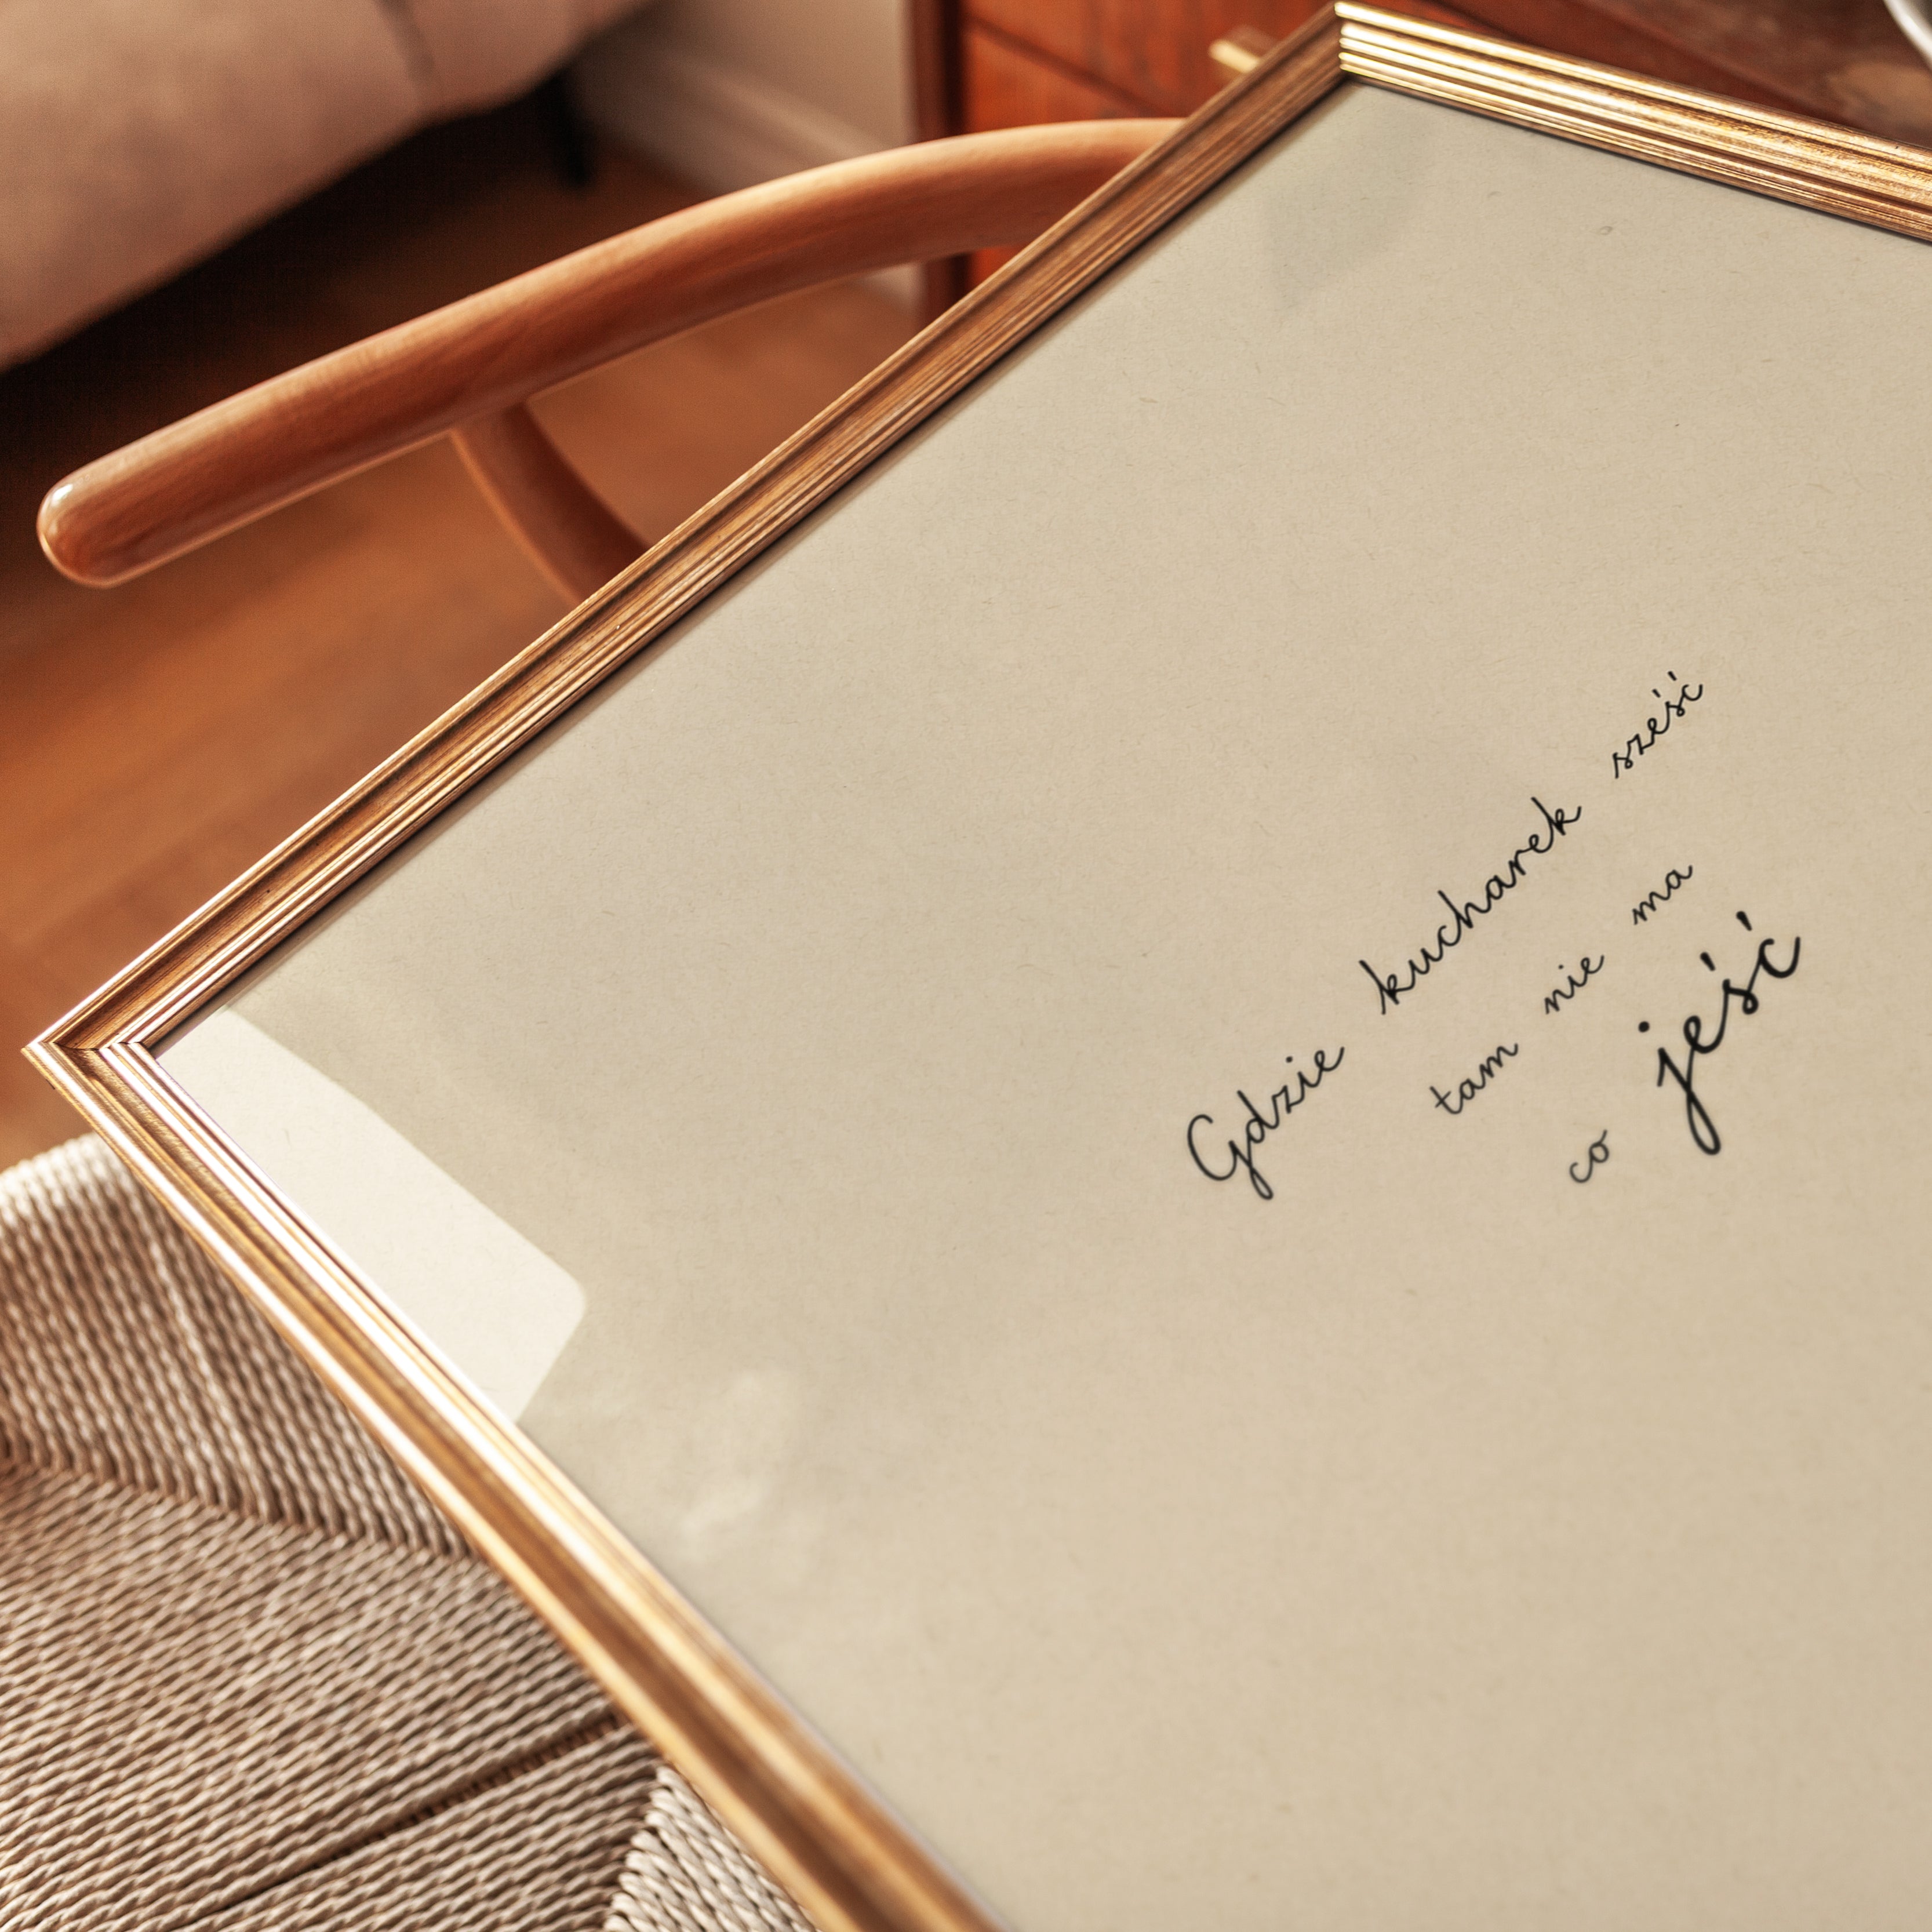 Gdzie kucharek sześć
tam nie ma
co jeść